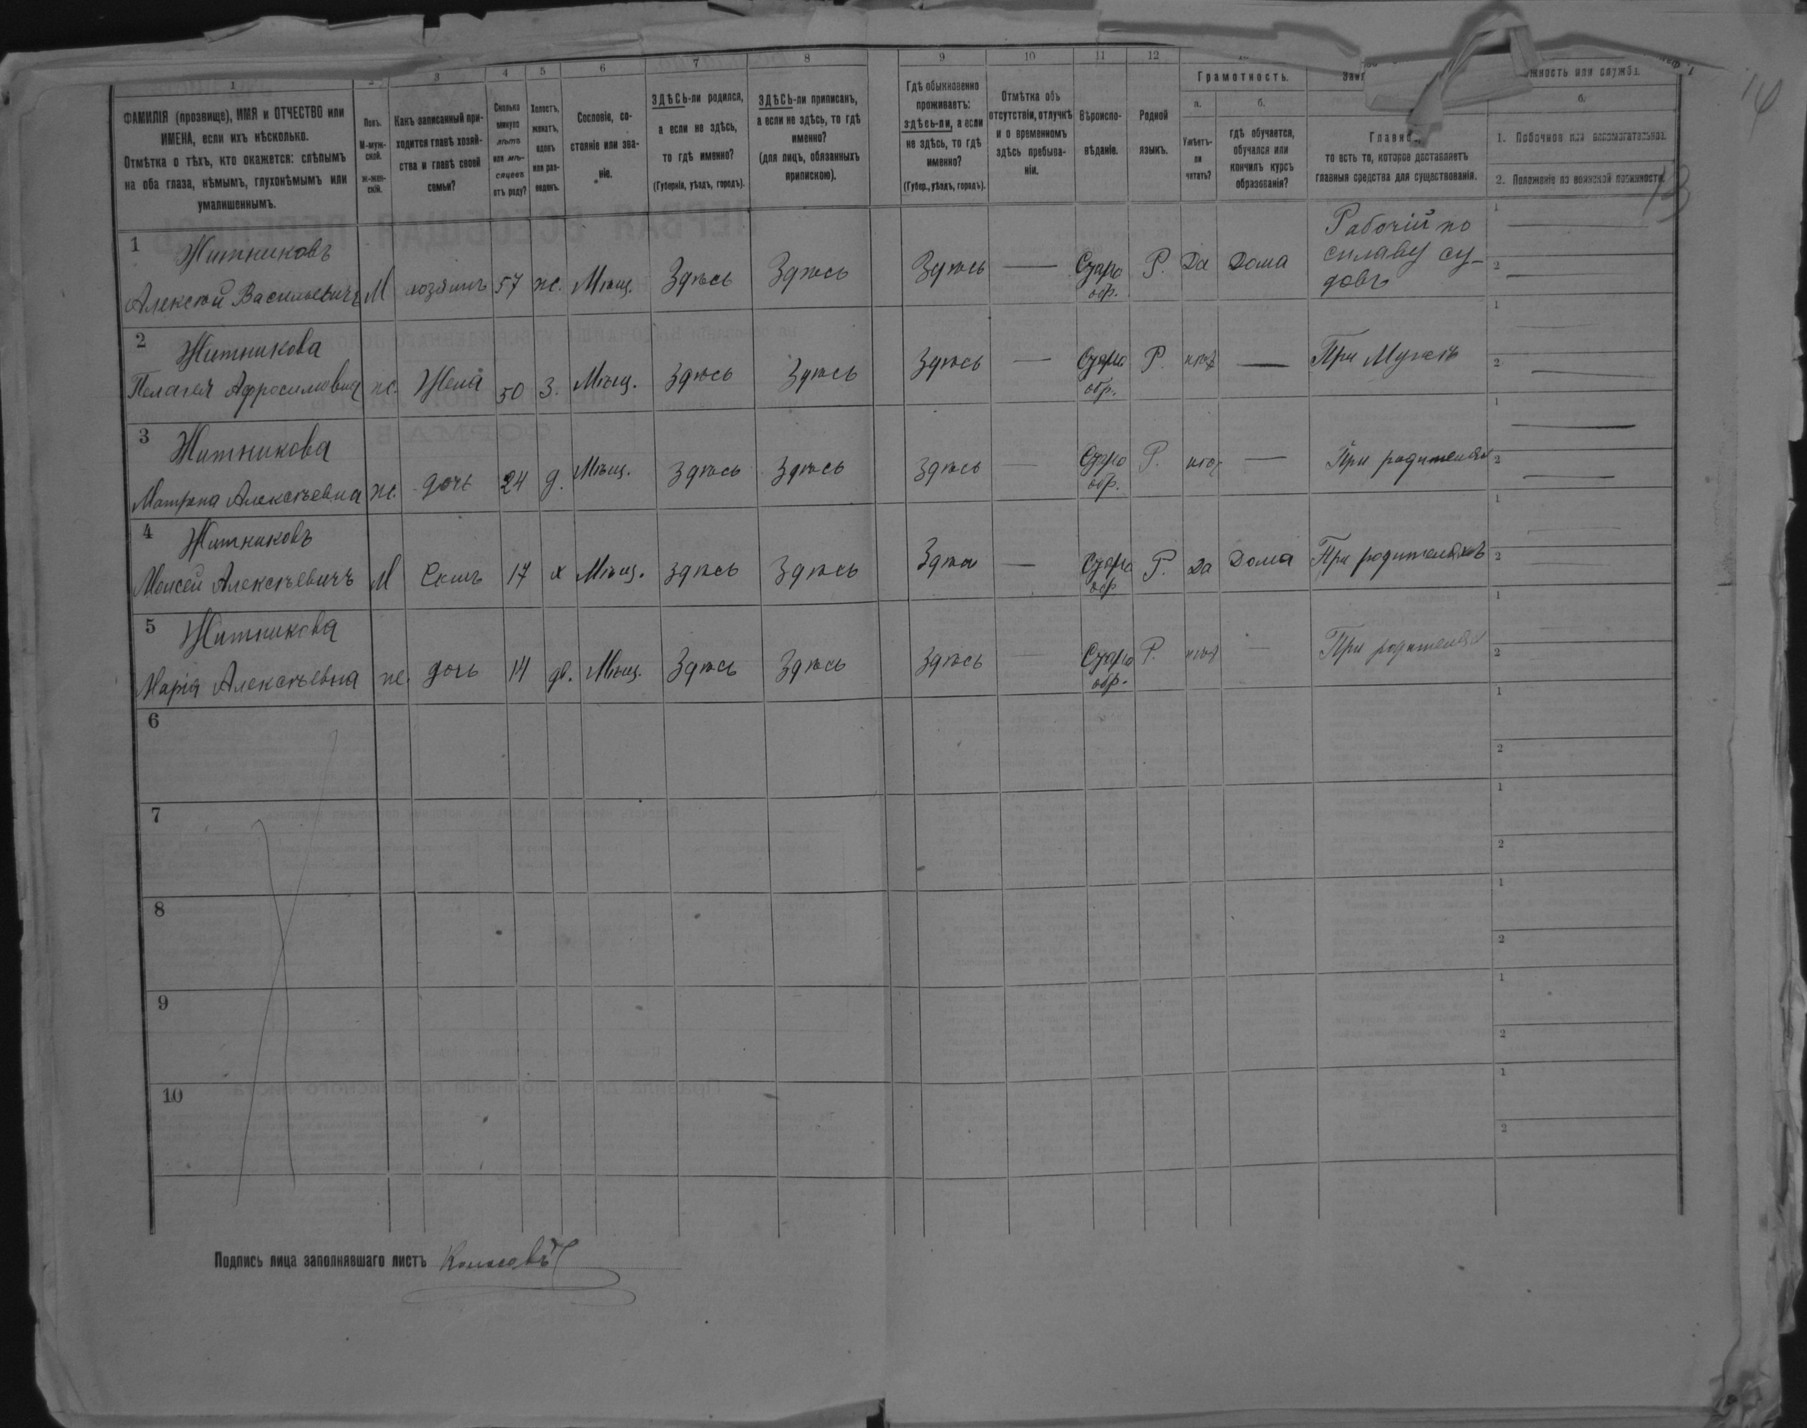 1 2 3 4 5 6 7 8 9 10 11 12
ФАМИЛІЯ (прозвище), ИМЯ и ОТЧЕСТВО или
ИМЕНА, если ихъ нѣсколько.
Отмѣтка о тѣхъ, кто окажется: слѣпымъ
на оба глаза, нѣмымъ, глухонѣмымъ или
умалишеннымъ.
Полъ.
М-муж-
ской.
ж-жен-
скій.
Какъ записанный при-
ходится главѣ хозяй-
ства и главѣ своей
семьи?
Сколько
минуло
лѣтъ
или мѣ-
сяцевъ
отъ роду?
Холостъ,
женатъ,
вдовъ
или раз-
веденъ.
Сословіе, со-
стояніе или зва-
ніе.
ЗДѢСЬ-ли родился,
а если не здѣсь,
то гдѣ именно?
(Губернія, уѣздъ, городъ).
ЗДѢСЬ-ли приписанъ,
а если не здѣсь, то гдѣ
именно?
(для лицъ, обязанныхъ
припискою).
Гдѣ обыкновенно
проживаетъ:
здѣсь-ли, а если
не здѣсь, то гдѣ
именно?
(Губер., уѣздъ, городъ).
Отмѣтка объ
отсутствіи, отлучкѣ
и о временномъ
здѣсь пребыва-
ніи.
Вѣроиспо-
вѣданіе.
Родной
языкъ.
Грамотность.
а.
Умѣетъ-
ли
читать?
б.
гдѣ обучается,
обучался или
кончилъ курсъ
образованія?
Главн
то есть то, которое доставляетъ
главныя средства для существованія.
жность или служба.
б.
1. Побочное или вспомогательное.
2. Положеніе по воинской повинности.
14
13
1 Житниковъ
Алексѣй Васильевичъ М хозяинъ 57 ж. Мѣщ. Здѣсь Здѣсь Здѣсь — Старо
обр. Р. Да Дома Рабочій по
сплаву су-
довъ
1 —
2 —
2 Житникова
Пелагея Афросимовна ж. Жена 50 З. Мѣщ. Здѣсь Здѣсь Здѣсь — Старо
обр. Р. нѣтъ — При Мужѣ
1 —
2 —
3 Житникова
Матрена Алексѣевна ж. дочь 24 д. Мѣщ. Здѣсь Здѣсь Здѣсь — Старо
обр. Р. нѣтъ — При родителях
1 —
2 —
4 Житниковъ
Моисей Алексѣевичъ М Сынъ 17 х Мѣщ. Здѣсь Здѣсь Здѣсь — Старо
обр Р. Да Дома При родителяхъ
1
2
5 Житникова
Марія Алексѣевна ж. дочь 14 дв. Мѣщ. Здѣсь Здѣсь Здѣсь — Старо
обр. Р. нѣтъ — При родителях
1
2
6
1
2
7
1
2
8
1
2
9
1
2
10
1
2
Подпись лица заполнявшаго листъ